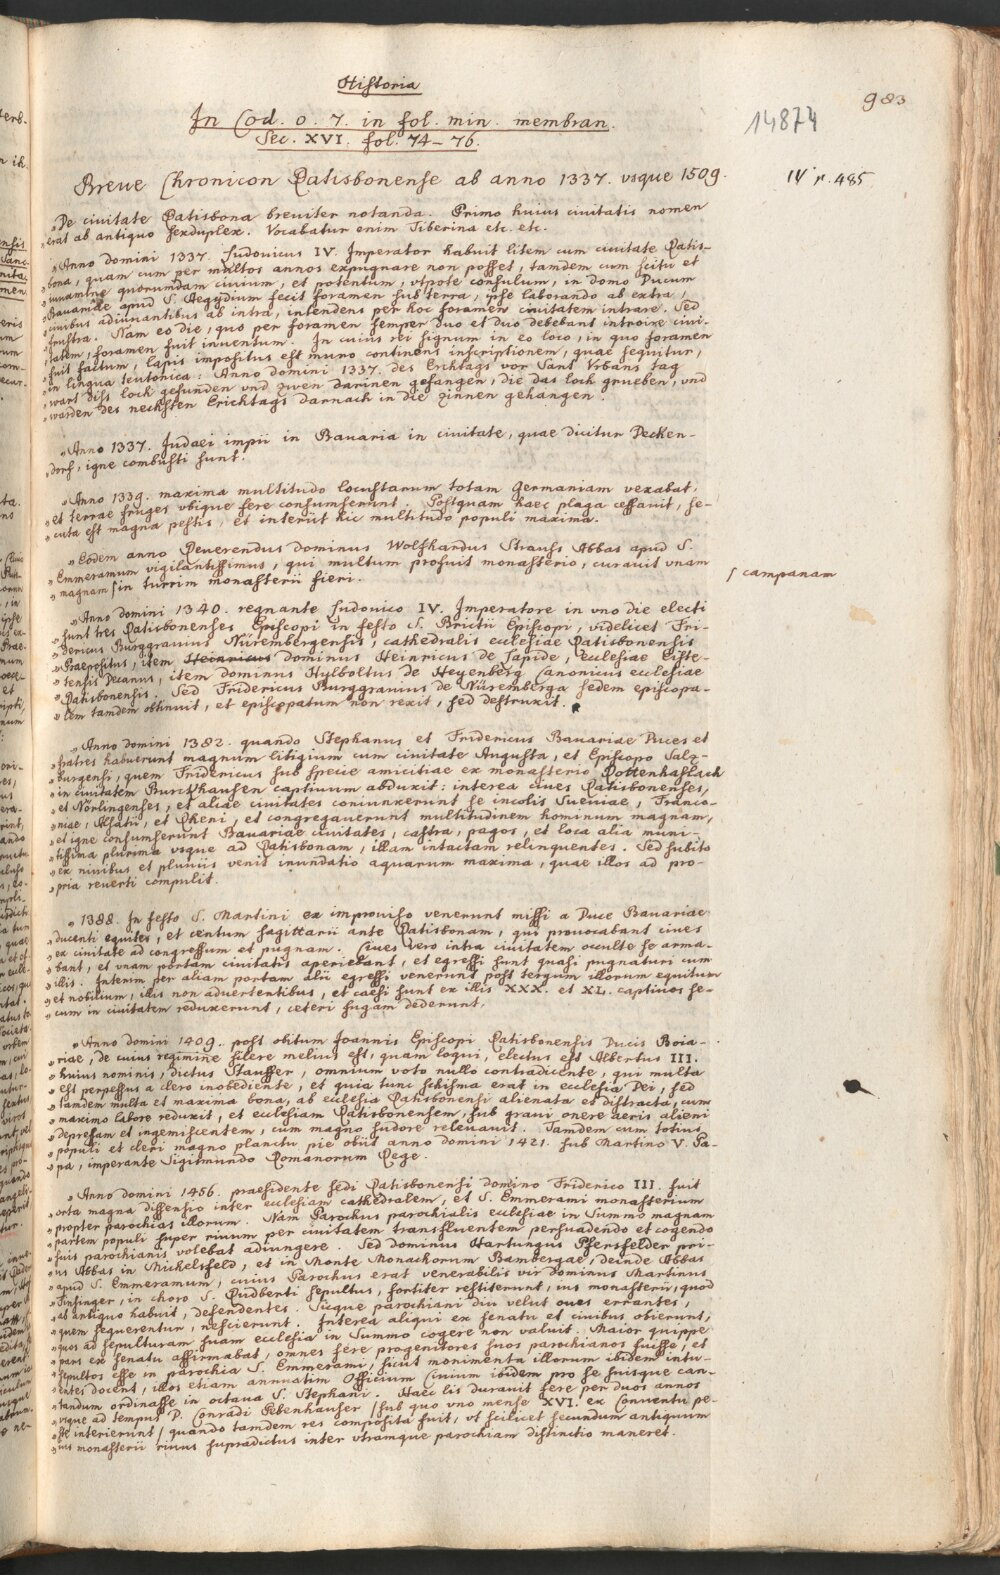 Historia
983
In Cod. o. 7. in fol. min. membran.
14874
Sec. XVI. fol. 74–76.
Breue Chronicon Ratisbonense ab anno 1337. vsque 1509.
IV p. 485
„De ciuitate Ratisbona breuiter notanda. Primo huius ciuitatis nomen
„erat ab antiquo sexduplex. Vocabatur enim Tiberina etc. etc.
„Anno domini 1337. Ludouicus IV. Imperator habuit litem cum ciuitate Ratis-
„bona, quam cum per multos annos expugnare non posset, tandem cum scitu et
„iuuamine quorumdam ciuium, et potentum, vtpote consulum, in domo Ducum
„Bauariae apud S. Aegydium fecit foramen sub terra, ipse laborando ab extra,
„ciuibus adiuuantibus ab intra, intendens per hoc foramen ciuitatem intrare. Sed
„frustra. Nam eo die, quo per foramen semper duo et duo debebant introire ciui-
„tatem, foramen fuit inuentum. In cuius rei signum in eo loco, in quo foramen
„fuit factum, lapis impositus est muro continens inscriptionem, quae sequitur,
„in lingua teutonica: Anno domini 1337. des Erichtags vor Sant Vrbans tag
„wart diss loch gefunden vnd zwen darinen gefangen, die das loch grueben, vnd
„warden des nechsten Erichtags darnach in die zinnen gehangen.
„Anno 1337. Judaei impii in Bauaria in ciuitate, quae dicitur Decken-
„dorf, igne combusti sunt.
„Anno 1339. maxima multitudo locustarum totam Germaniam vexabat,
„et terrae fruges vbique fere consumserunt. Postquam haec plaga cessauit, se-
„cuta est magna pestis, et interiit hic multitudo populi maxima.
„Eodem anno Reuerendus dominus Wolfhardus Strauss Abbas apud S.
„Emmeramum vigilantissimus, qui multum profuit monasterio, curauit vnam
„magnam ſ in turrim monasterii fieri.
ſ campanam
„Anno domini 1340. regnante Ludouico IV. Imperatore in vno die electi
„sunt tres Ratisbonenses Episcopi in festo S. Brictii Episcopi, videlicet Fri-
„dericus Burggrauius Nürembergensis, cathedralis ecclesiae Ratisbonensis
„Praepositus, item Heinricus dominus Heinricus de Lapide, ecclesiae Eiste-
„tensis Decanus, item dominus Hylboltus de Heyenberg Canonicus ecclesiae
„Ratisbonensis. Sed Fridericus Burggrauius de Nüremberga sedem episcopa-
„lem tamdem obtinuit, et episcopatum non rexit, sed destruxit.
„Anno domini 1382. quando Stephanus et Fridericus Bauariae Duces et
„fratres habuerunt magnum litigium cum ciuitate Augusta, et Episcopo Salz-
„burgensi, quem Fridericus sub specie amicitiae ex monasterio Rottenhaslach
„in ciuitatem Burckhausen captiuum abduxit: interea ciues Ratisbonenses,
„et Nörlingenses, et aliae ciuitates coniunxerunt se incolis Sueuiae, Franco-
„niae, Alsatii, et Rheni, et congregauerunt multitudinem hominum magnam,
„et igne consumserunt Bauariae ciuitates, castra, pagos, et loca alia muni-
„tissima plurima vsque ad Ratisbonam, illam intactam relinquentes. Sed subito
„ex niuibus et pluuiis venit inundatio aquarum maxima, quae illos ad pro-
„pria reuerti compulit.
„1388. In festo S. Martini ex improuiso venerunt missi a Duce Bauariae
„ducenti equites, et centum sagittarii ante Ratisbonam, qui prouocabant ciues
„ex ciuitate ad congressum et pugnam. Ciues vero intra ciuitatem occulte se arma-
„bant, et vnam portam ciuitatis aperiebant, et egressi sunt quasi pugnaturi cum
„illis. Interim per aliam portam alii egressi venerunt post tergum illorum equitum
„et nobilium, illis non aduertentibus, et caesi sunt ex illis XXX. et XL. captiuos se-
„cum in ciuitatem reduxerunt, ceteri fugam dederunt.
„Anno domini 1409. post obitum Joannis Episcopi Ratisbonensis Ducis Boia-
„riae, de cuius regimine silere melius est, quam loqui, electus est Albertus III.
„huius nominis, dictus Stauffer, omnium voto nullo contradicente, qui multa
„est perpessus a clero inobediente, et quia tunc schisma erat in ecclesia Dei, sed
„tamdem multa et maxima bona, ab ecclesia Ratisbonensi alienata et distracta, cum
„maximo labore reduxit, et ecclesiam Ratisbonensem, sub graui onere aeris alieni
„depressam et ingemiscentem, cum magno sudore releuauit. Tamdem cum totius
„populi et cleri magno planctu pie obiit anno domini 1421. sub Martino V. Pa-
„pa, imperante Sigismundo Romanorum Rege.
„Anno domini 1456. praesidente sedi Ratisbonensi domino Friderico III. fuit
„orta magna dissensio inter ecclesiam cathedralem, et S. Emmerami monasterium
„propter parochias illorum. Nam Parochus parochialis ecclesiae in Summo magnam
„partem populi super riuum per ciuitatem transfluentem persuadendo et cogendo
„suis parochianis volebat adiungere. Sed dominus Hartungus Pfersfelder pri-
„us Abbas in Michelsfeld, et in Monte Monachorum Bambergae, deinde Abbas
„apud S. Emmeramum, cuius Parochus erat venerabilis vir dominus Martinus
„Tinfinger, in choro S. Rudberti sepultus, fortiter restiterunt, ius monasterii, quod
„ab antiquo habuit, defendentes. Sicque parochiani diu velut oues errantes,
„quem sequerentur, nescierunt. Interea aliqui ex senatu et ciuibus obierunt,
„quos ad sepulturam suam ecclesia in Summo cogere non valuit. Maior quippe
„pars ex senatu affirmabat, omnes fere progenitores suos parochianos fuisse, et
„sepultos esse in parochia S. Emmerami, sicut monimenta illorum ibidem intu-
„entes docent, illos etiam annuatim Officium Ciuium ibidem pro se suisque can-
„tandum ordinasse in octaua S. Stephani. Haec lis durauit fere per duos annos
„vsque ad tempus D. Conradi Pebenhauser / sub quo vno mense XVI. ex Conuentu pe-
„ste interierunt / quando tamdem res composita fuit, vt scilicet secundum antiquum
„ius monasterii riuus supradictus inter vtramque parochiam distinctio maneret.